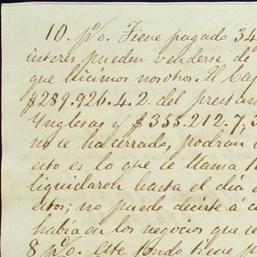 10. p%. Tiene pagado 34
interes pueden venderse de
que hicimos nosotros. El Ca
$289.926.4.2. del prestam
Ynglesas y $355.212.7.3
no ie ha cerrado, podran
esto es lo que se llama
liquidaron hasta el dia
ditos; no puedo decirte á c
habia en los negocios que
8 p%. Este fondo tiene p